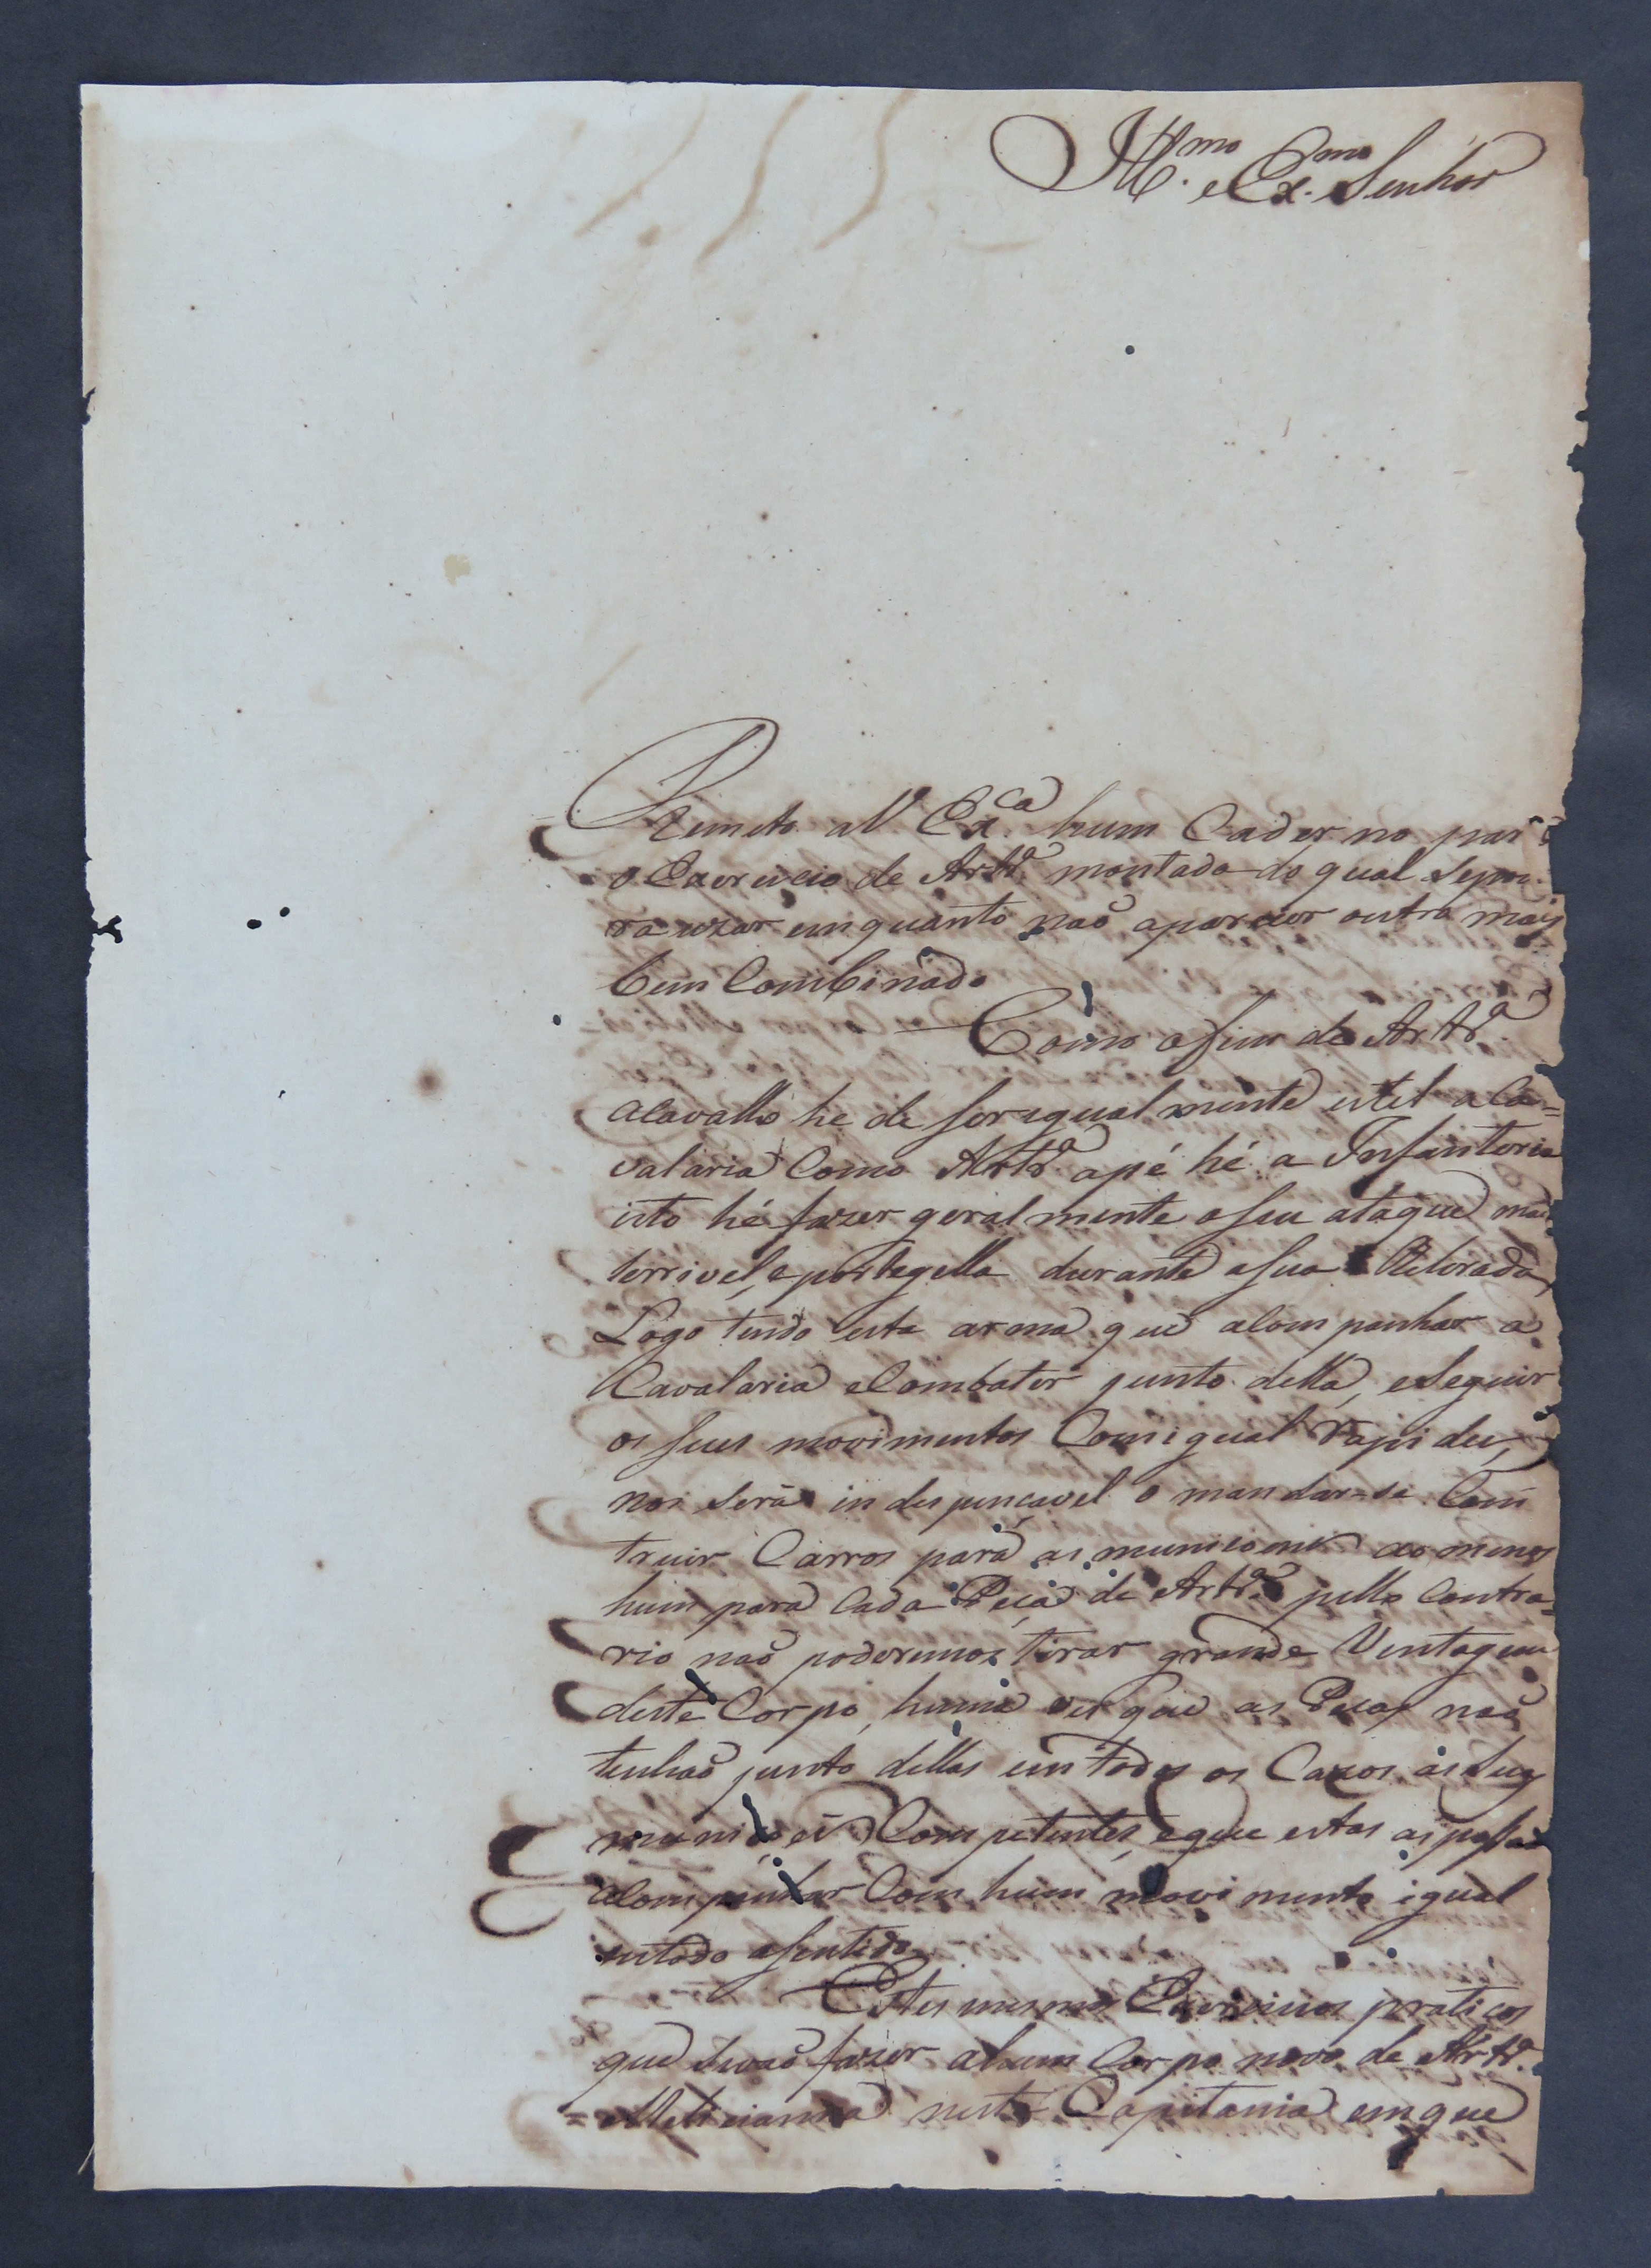 Ill.mo e Ex.mo Senhor
Remeto a V. Ex.ca hum Caderno para
o Exercicio de Artr.a montada do qual se po=
ra uzar emquanto naõ aparecer outro mais
bem Combinado
Como o fim da Artr.a
a Cavallo he de ser igualmente util a Ca=
valaria Como Artr.a apé hé a Infantaria
isto hé fazer geralmente o seu ataque mais
terrivel, e protegella durante a sua Retirada
Logo tendo esta arma que acompanhar a
Cavalaria e Combater junto della, e Seguir
os seus movimentos Com igual rapides,
nos será indespençavel o mandar=se Cons
truir Carros para as municoens ao menos
hum para cada Peça de Artr.a pello Contra=
rio naõ poderemos tirar grande Ventagem
deste Corpo, huma ves que as Pecas naõ
tenhaõ junto dellas em todos os Cazos as suas
municoẽs Competentes, e que estas as possaõ
acompanhar Com hum movimento igual
entodo o sentido.
Estes mesmos Exercicios praticos
que se vaõ fazer a hum Corpo novo de Artr.a
Meliciana nesta Capitania em que